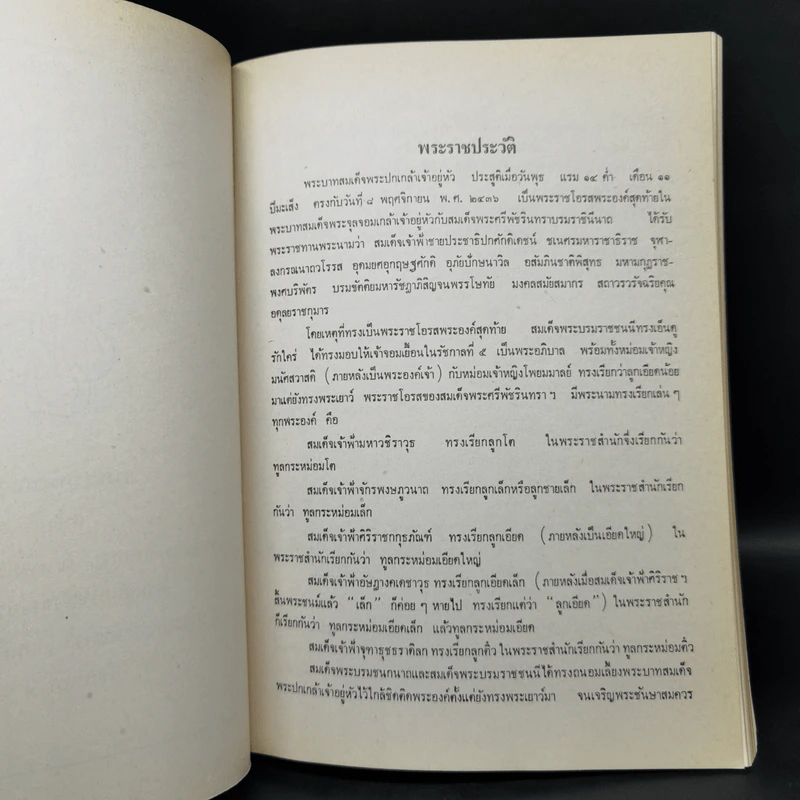 พระราชประวัติ
พระบาทสมเด็จพระปกเกล้าเจ้าอยู่หัว ประสูติเมื่อวันพุธ แรม ๑๔ ค่ำ เดือน ๑๑
ปีมะเส็ง ตรงกับวันที่ ๘ พฤศจิกายน พ.ศ. ๒๔๓๖ เป็นพระราชโอรสพระองค์สุดท้ายใน
พระบาทสมเด็จพระจุลจอมเกล้าเจ้าอยู่หัวกับสมเด็จพระศรีพัชรินทราบรมราชินีนาถ ได้รับ
พระราชทานพระนามว่า สมเด็จเจ้าฟ้าชายประชาธิปกศักดิเดชน์ ชเนศรมหาราชาธิราช จุฬา-
ลงกรณนาถวโรรส อุดมยศอุกฤษฐศักดิ อุภัยปักษนาวิล อสัมภินชาติพิสุทธ มหามกุฎราช-
พงศบริพัตร บรมขัตติยมหารัชฎาภิสิญจนพรรโษทัย มงคลสมัยสมากร สถาวรวรัจฉริยคุณ
อดุลยราชกุมาร
โดยเหตุที่ทรงเป็นพระราชโอรสพระองค์สุดท้าย สมเด็จพระบรมราชชนนีทรงเอ็นดู
รักใคร่ ได้ทรงมอบให้เจ้าจอมเยื้อนในรัชกาลที่ ๕ เป็นพระอภิบาล พร้อมทั้งหม่อมเจ้าหญิง
มนัศสวาสดิ (ภายหลังเป็นพระองค์เจ้า) กับหม่อมเจ้าหญิงโพยมมาลย์ ทรงเรียกว่าลูกเอียดน้อย
มาแต่ยังทรงพระเยาว์ พระราชโอรสของสมเด็จพระศรีพัชรินทราฯ มีพระนามทรงเรียกเล่น ๆ
ทุกพระองค์ คือ
สมเด็จเจ้าฟ้ามหาวชิราวุธ ทรงเรียกลูกโต ในพระราชสำนักจึงเรียกกันว่า
ทูลกระหม่อมโต
สมเด็จเจ้าฟ้าจักรพงษภูวนาถ ทรงเรียกลูกเล็กหรือลูกชายเล็ก ในพระราชสำนักเรียก
กันว่า ทูลกระหม่อมเล็ก
สมเด็จเจ้าฟ้าศิริราชกกุธภัณฑ์ ทรงเรียกลูกเอียด (ภายหลังเป็นเอียดใหญ่) ใน
พระราชสำนักเรียกกันว่า ทูลกระหม่อมเอียดใหญ่
สมเด็จเจ้าฟ้าอัษฎางคเดชาวุธ ทรงเรียกลูกเอียดเล็ก (ภายหลังเมื่อสมเด็จเจ้าฟ้าศิริราชฯ
สิ้นพระชนม์แล้ว “เล็ก” ก็ค่อย ๆ หายไป ทรงเรียกแต่ว่า “ลูกเอียด”) ในพระราชสำนัก
ก็เรียกกันว่า ทูลกระหม่อมเอียดเล็ก แล้วทูลกระหม่อมเอียด
สมเด็จเจ้าฟ้าจุฑาธุชธราดิลก ทรงเรียกลูกติ๋ว ในพระราชสำนักเรียกกันว่า ทูลกระหม่อมติ๋ว
สมเด็จพระบรมชนกนาถและสมเด็จพระบรมราชชนนีได้ทรงถนอมเลี้ยงพระบาทสมเด็จ
พระปกเกล้าเจ้าอยู่หัวไว้ใกล้ชิดติดพระองค์ตั้งแต่ยังทรงพระเยาว์มา จนเจริญพระชันษาสมควร